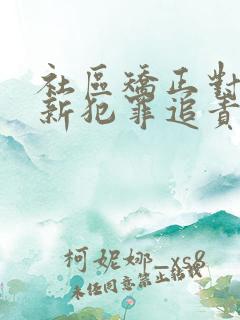 社區矯正對
新犯罪追責
柯妮娜_xs8
未經同意禁止轉載